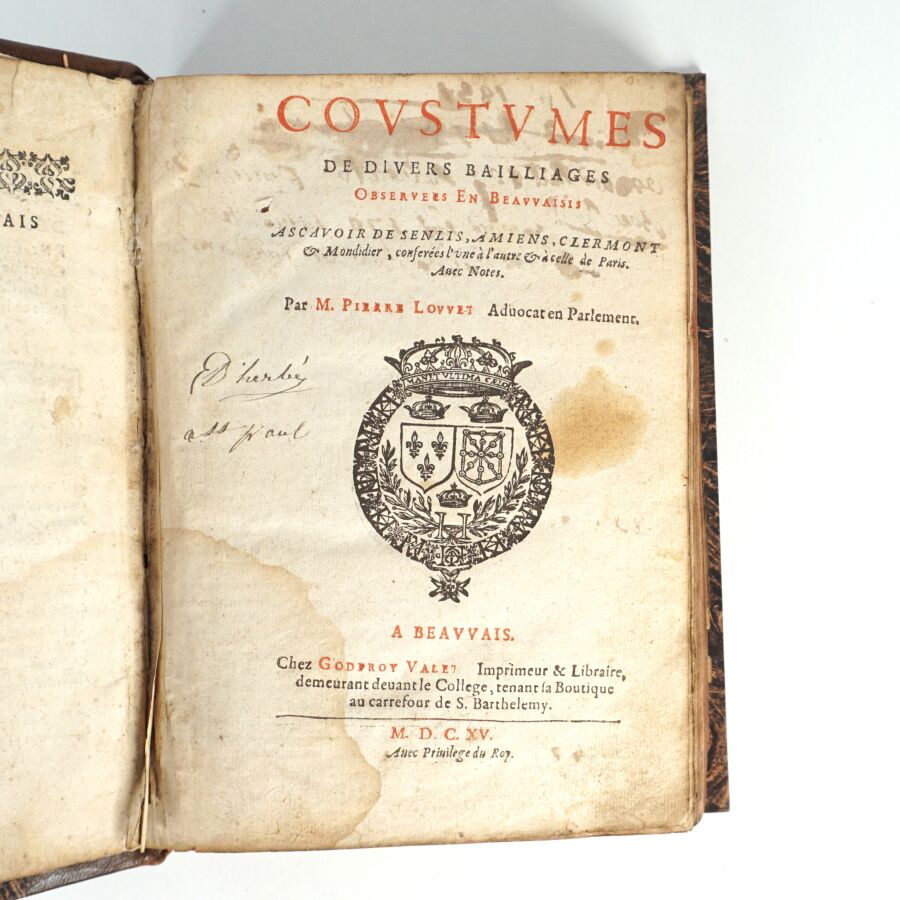 AIS
COVSTVMES
DE DIVERS BAILLIAGES
OBSERVEES EN BEAVVAISIS
ASCAVOIR DE SENLIS, AMIENS, CLERMONT
& Mondidier, conferées l'vne à l'autre & à celle de Paris.
Auec Notes.
Par M. PIERRE LOVVET Aduocat en Parlement.
D'herbé
MANET VLTIMA CÆLO
H
A BEAVVAIS.
Chez GODEFROY VALET Imprimeur & Libraire,
demeurant deuant le College, tenant sa Boutique
au carrefour de S. Barthelemy.
M. D. C. XV.
Auec Priuilege du Roy.